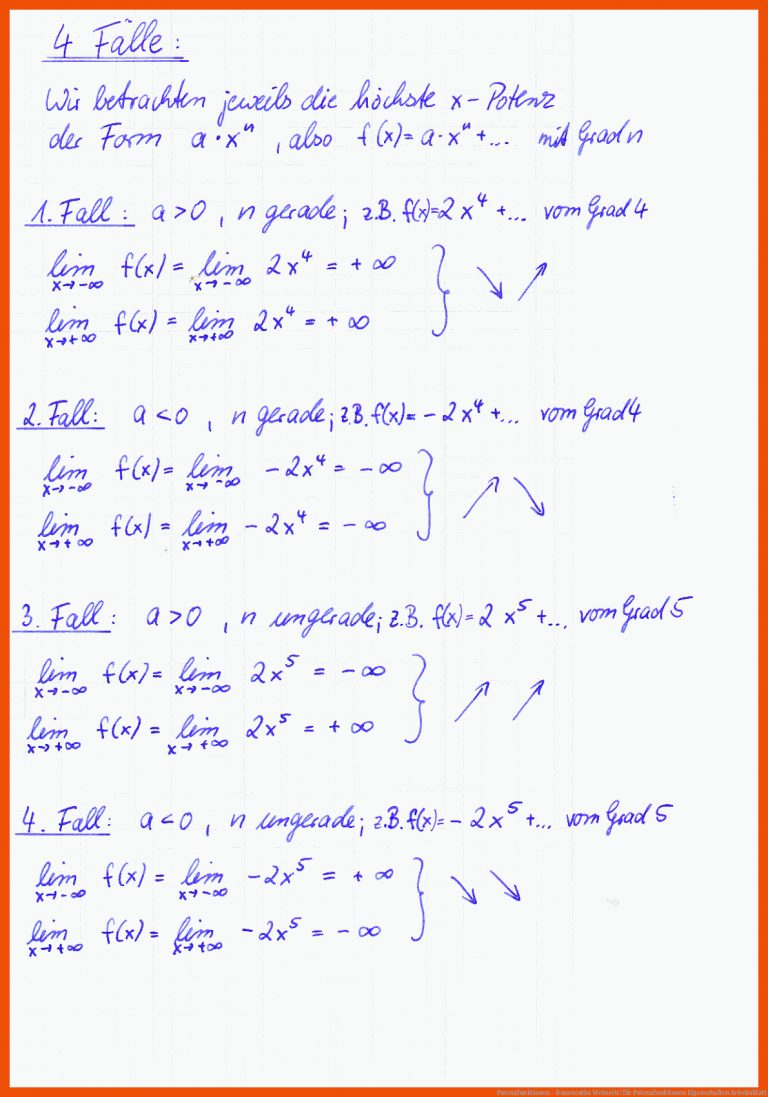 4 Fälle:
Wir betrachten jeweils die höchste x-Potenz
der Form a·xⁿ, also f(x)=a·xⁿ+... mit Grad n
1. Fall: a>0, n gerade; z.B. f(x)=2x⁴+... vom Grad 4
lim x→-∞ f(x) = lim x→-∞ 2x⁴ = +∞ } ↘ ↗
lim x→+∞ f(x) = lim x→+∞ 2x⁴ = +∞
2. Fall: a<0, n gerade; z.B. f(x)=-2x⁴+... vom Grad 4
lim x→-∞ f(x) = lim x→-∞ -2x⁴ = -∞ } ↗ ↘
lim x→+∞ f(x) = lim x→+∞ -2x⁴ = -∞
3. Fall: a>0, n ungerade; z.B. f(x)=2x⁵+... vom Grad 5
lim x→-∞ f(x) = lim x→-∞ 2x⁵ = -∞ } ↗ ↗
lim x→+∞ f(x) = lim x→+∞ 2x⁵ = +∞
4. Fall: a<0, n ungerade; z.B. f(x)=-2x⁵+... vom Grad 5
lim x→-∞ f(x) = lim x→-∞ -2x⁵ = +∞ } ↘ ↘
lim x→+∞ f(x) = lim x→+∞ -2x⁵ = -∞
Potenzfunktionen - Eigenschaften Arbeitsblatt